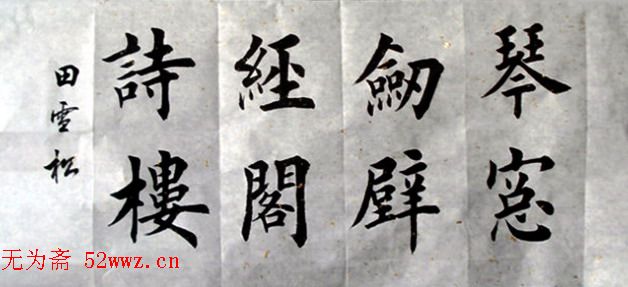 琴窓
劒壁
經閣
詩樓
田雪松
无为斋 52wwz.cn